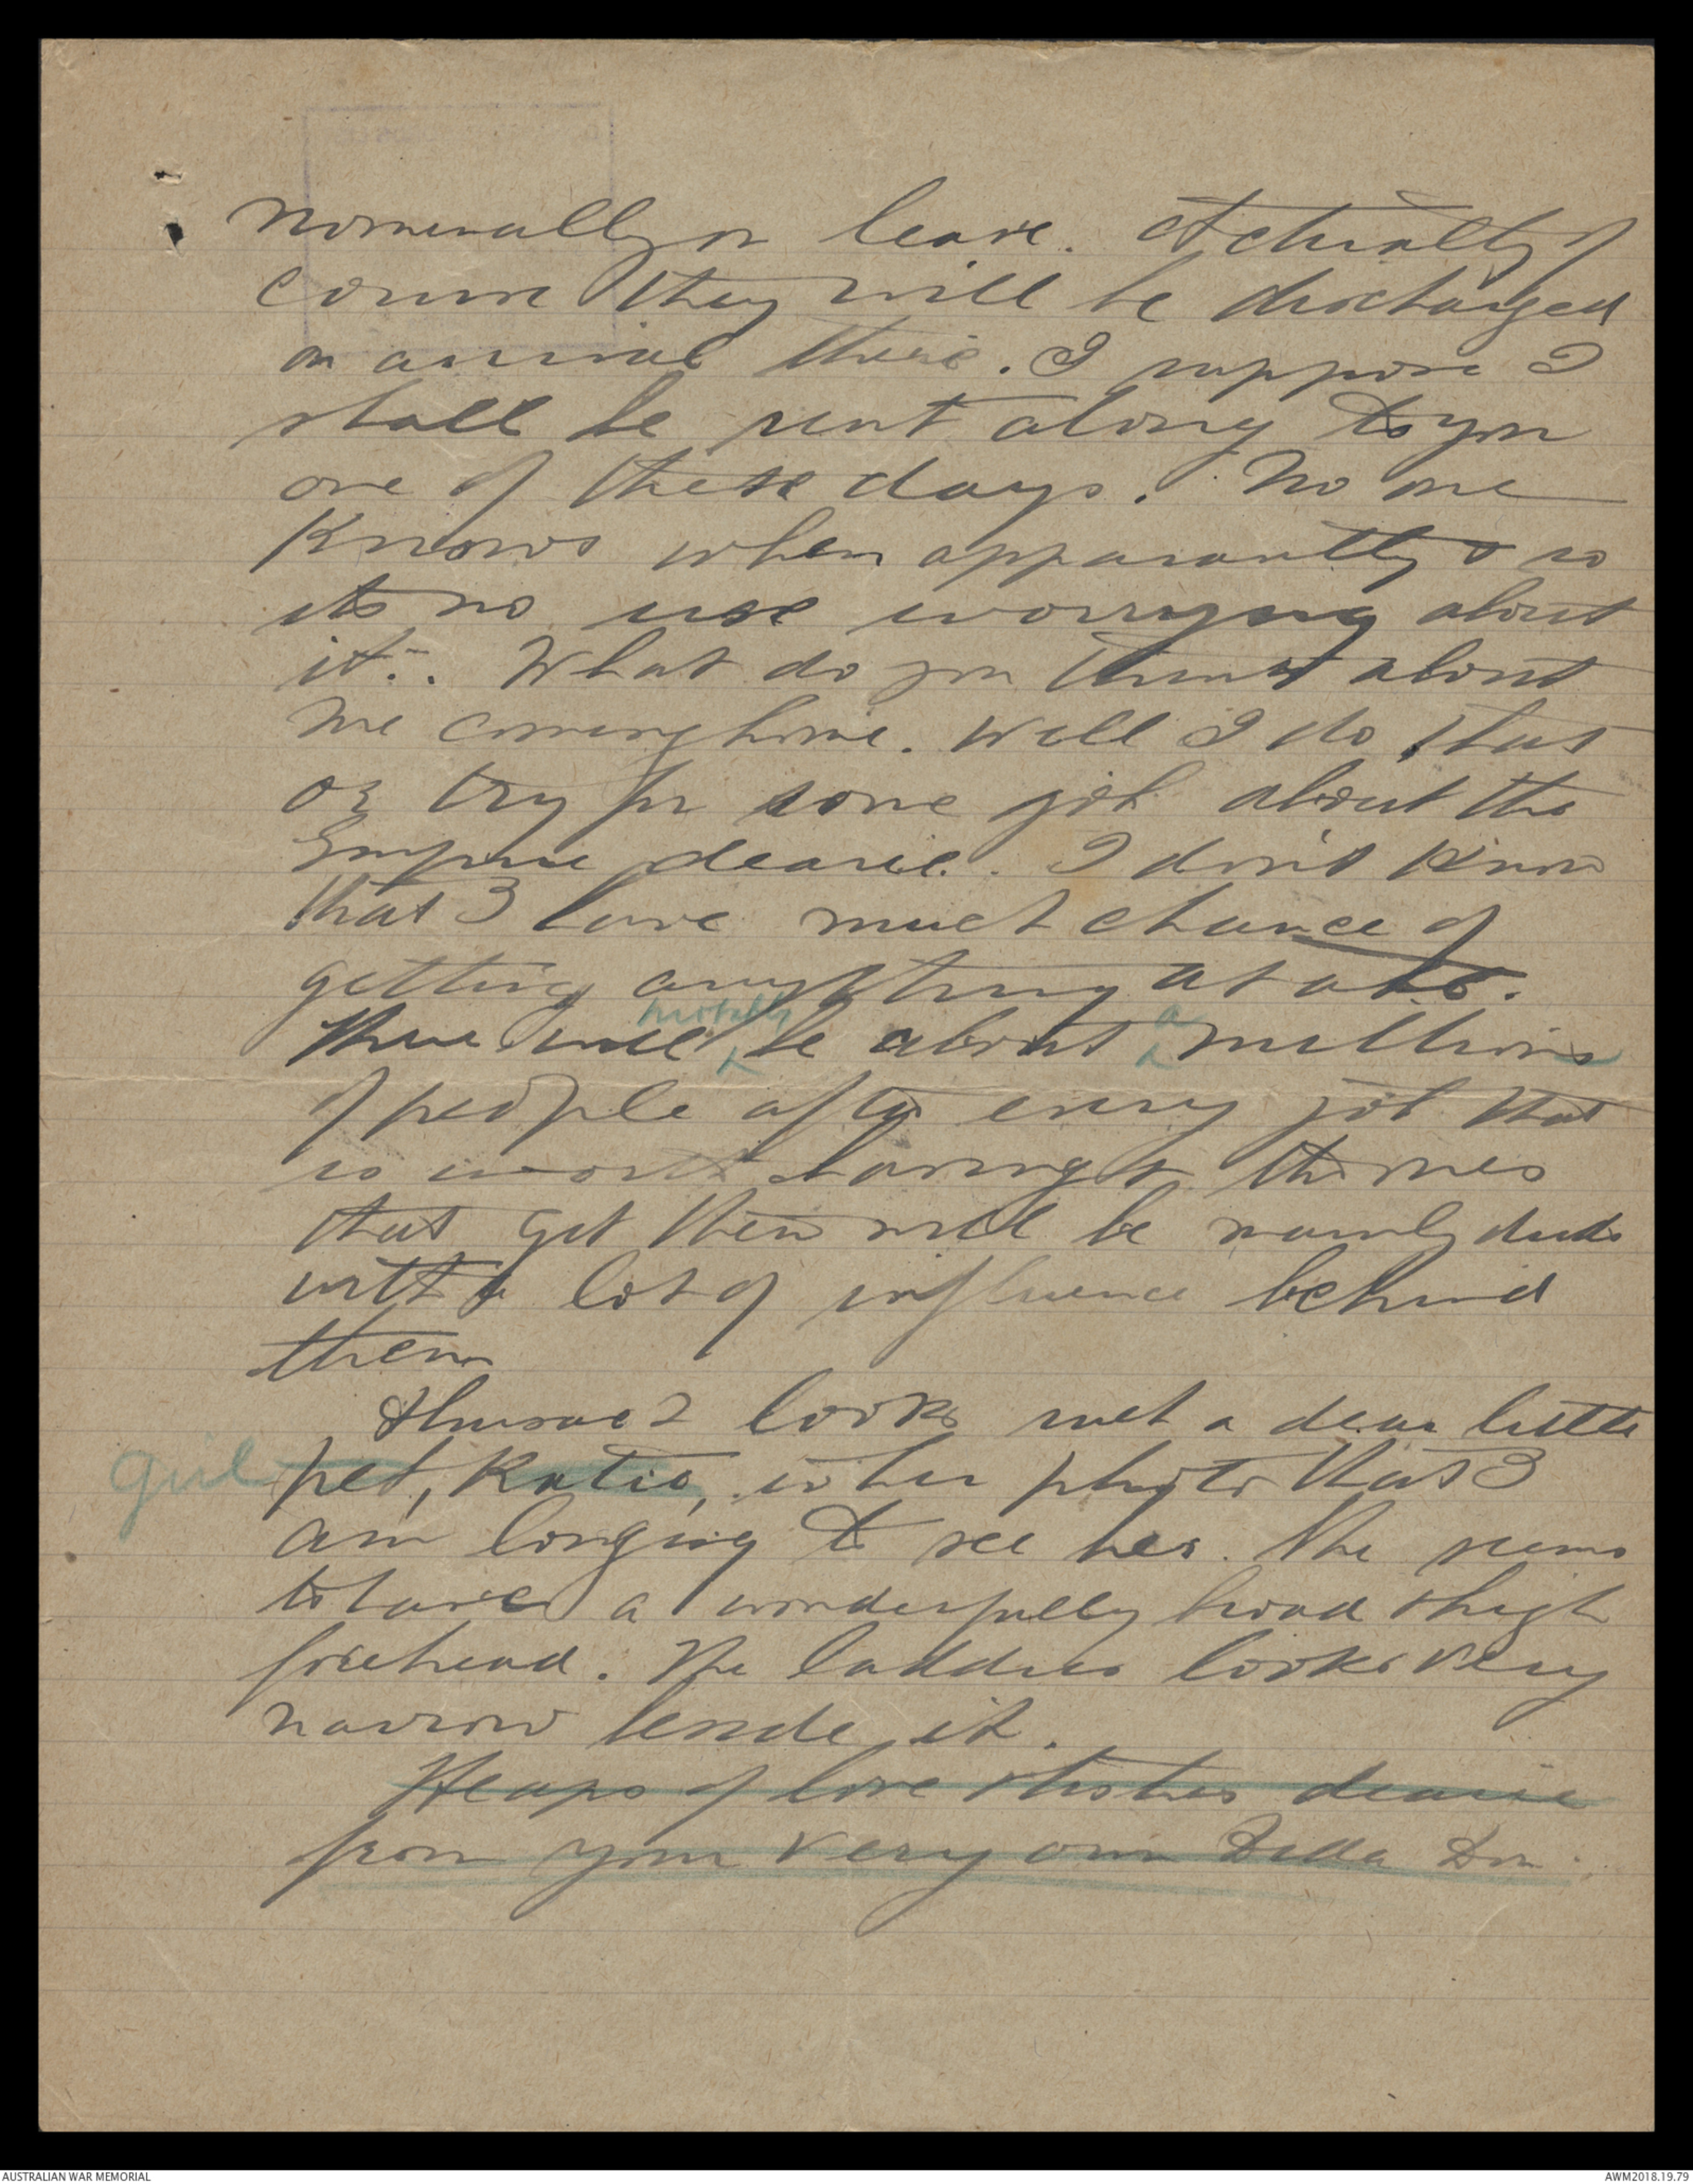 nominally on leave. Actually of
course they will be discharged
on arrival there. I suppose I
shall be sent along to you
one of these days. No one
knows when apparantly & so
its no use worrying about
it. What do you think about
me coming home. Will I do that
or try for some job about the
Empire dearie. I don't know
that I have much chance of
getting anything at all.
probably a
There will be about millions
of people after every job that
is worth having & the ones
that get them will be mainly duds
with a lot of influence behind
them
looks such a dear little
girl
pet, Katie, in her photo that I
am longing to see her. She seems
to have a wonderfully broad & high
forehead. The laddies looks very
narrow beside it.
Heaps of love & kisses dearie
from your very own Dadda Don.
AUSTRALIAN WAR MEMORIAL
AWM2018.19.79